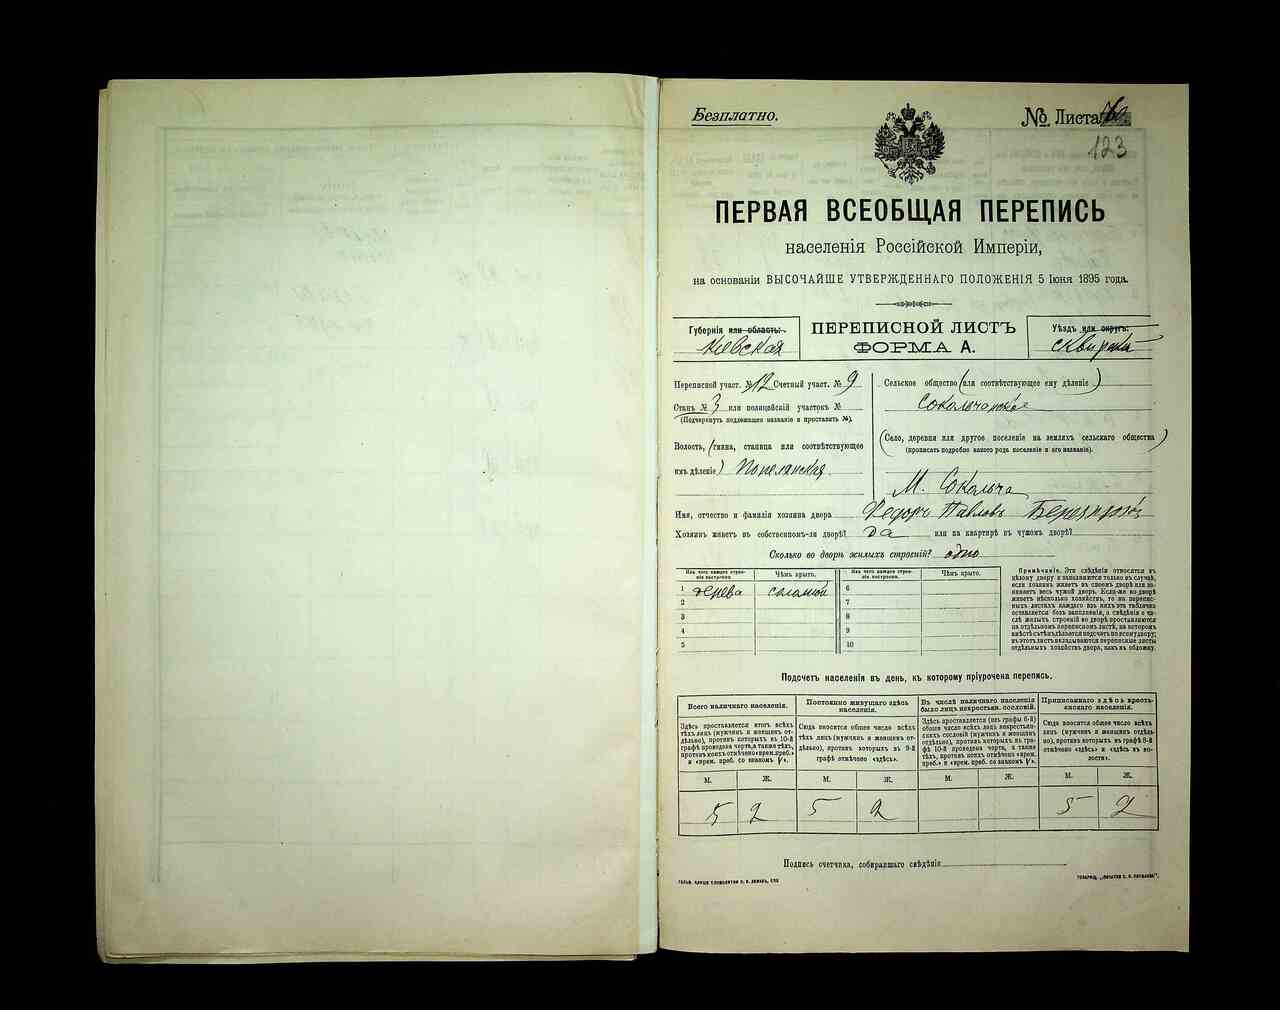 Безплатно.
№ Листа
123
ПЕРВАЯ ВСЕОБЩАЯ ПЕРЕПИСЬ
населенія Россійской Имперіи,
на основаніи ВЫСОЧАЙШЕ УТВЕРЖДЕННАГО ПОЛОЖЕНІЯ 5 Іюня 1895 года.
Губернія или область:
Кіевская
ПЕРЕПИСНОЙ ЛИСТЪ
ФОРМА А.
Уѣздъ или округъ:
Сквирскій
Переписной участ. № 12 Счетный участ. № 9
Станъ № 3 или полицейскій участокъ №
(Подчеркнуть подлежащее названіе и проставить №).
Волость, (гмина, станица или соотвѣтствующее
имъ дѣленіе) Попелянская
Сельское общество (или соотвѣтствующее ему дѣленіе)
Сокольчанское
(Село, деревня или другое поселеніе на земляхъ сельскаго общества)
(прописать подробно какого рода поселеніе и его названіе).
М. Сокольча
Имя, отчество и фамилія хозяина двора Федоръ Павловъ
Хозяинъ живетъ въ собственномъ-ли дворѣ? да или на квартирѣ въ чужомъ дворѣ?
Сколько во дворѣ жилыхъ строеній? одно
Изъ чего каждое строеніе построено.
Чѣмъ крыто.
Изъ чего каждое строеніе построено.
Чѣмъ крыто.
1 дерева соломой 6
2 7
3 8
4 9
5 10
Примѣчаніе. Эти свѣдѣнія относятся къ
цѣлому двору и заполняются только въ случаѣ,
если хозяинъ живетъ въ своемъ дворѣ или занимаетъ
весь чужой дворъ. Если-же во дворѣ
живетъ нѣсколько хозяйствъ, то на переписныхъ
листахъ каждаго изъ нихъ эта табличка
оставляется безъ заполненія, а свѣдѣнія о числѣ
жилыхъ строеній во дворѣ проставляются
на отдѣльномъ переписномъ листѣ, на которомъ
вмѣстѣ съ тѣмъ дѣлается подсчетъ по всему двору;
въ этотъ листъ вкладываются переписные листы
отдѣльныхъ хозяйствъ двора, какъ въ обложку.
Подсчетъ населенія въ день, къ которому пріурочена перепись.
Всего наличнаго населенія.
Здѣсь проставляется итогъ всѣхъ
тѣхъ лицъ (мужчинъ и женщинъ отдѣльно),
противъ которыхъ въ 10-й
графѣ проведена черта, а также тѣхъ,
противъ коихъ отмѣчено «врем. преб.»
и «врем. преб. со знакомъ V».
Постоянно живущаго здѣсь
населенія.
Сюда вносится общее число всѣхъ
тѣхъ лицъ (мужчинъ и женщинъ отдѣльно),
противъ которыхъ въ 9-й
графѣ отмѣчено «здѣсь».
Въ числѣ наличнаго населенія
было лицъ некрестьян. сословій.
Здѣсь проставляется (изъ графы 6-й)
общее число всѣхъ лицъ некрестьянскихъ
сословій (мужчинъ и женщинъ
отдѣльно), противъ которыхъ въ графѣ
10-й проведена черта, а также
тѣхъ, противъ коихъ отмѣчено «врем.
преб.» и «врем. преб. со знакомъ V».
Приписаннаго здѣсь крестьянскаго
населенія.
Сюда вносится общее число всѣхъ
лицъ (мужчинъ и женщинъ отдѣльно),
противъ которыхъ въ графѣ 8-й
отмѣчено «здѣсь» и «здѣсь въ волости».
М. Ж. М. Ж. М. Ж. М. Ж.
5 2 5 2 5 2
Подпись счетчика, собиравшаго свѣдѣнія